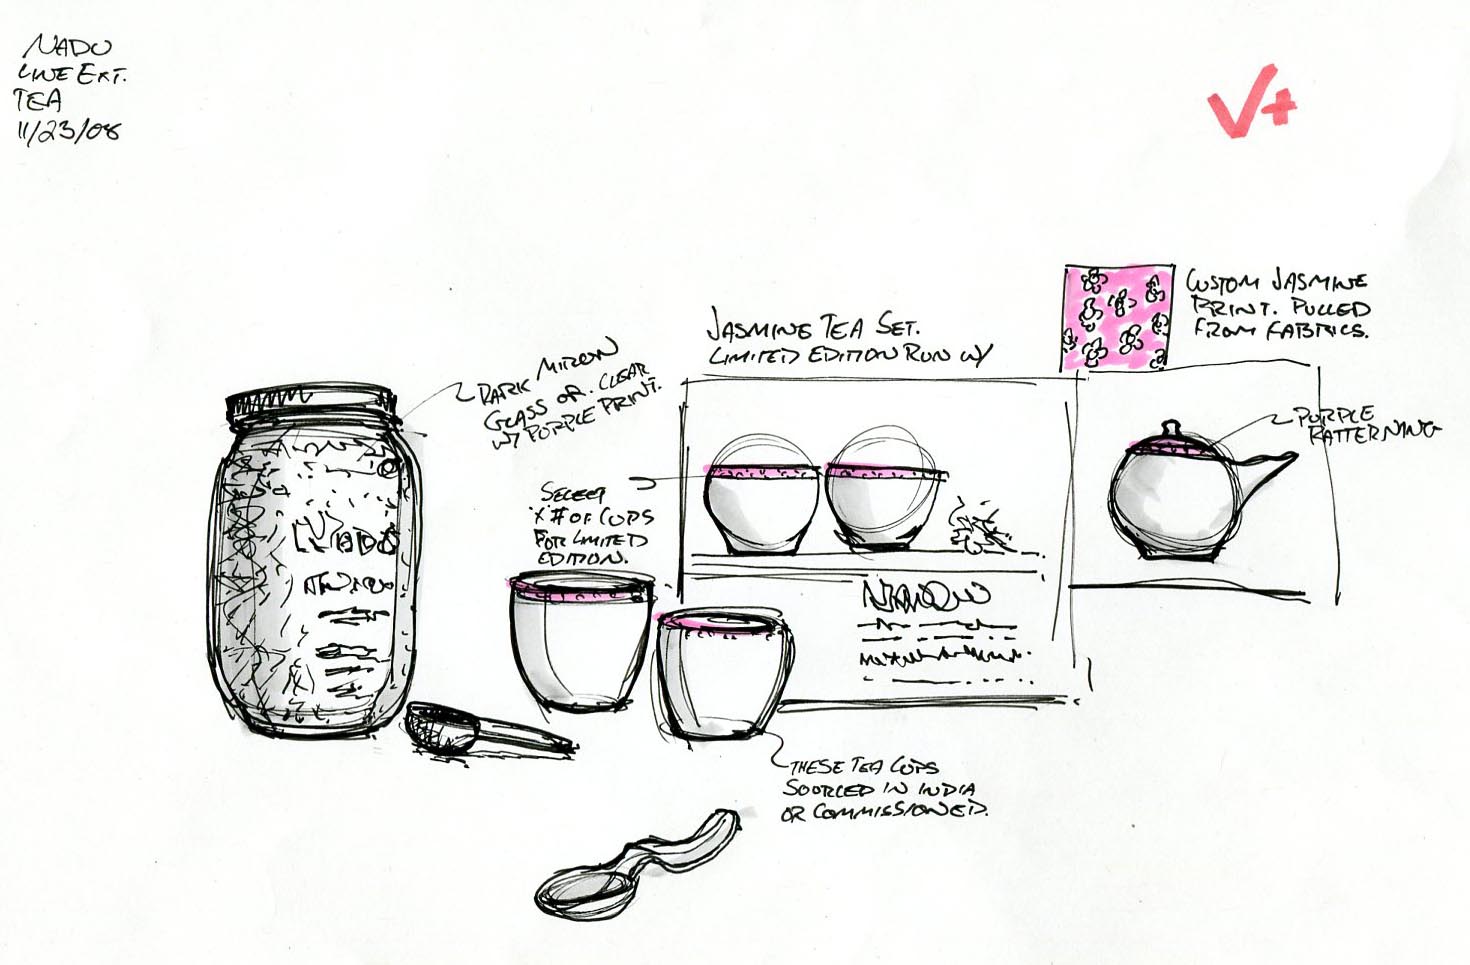 NADO
LINE EXT.
TEA
11/23/08
√+
CUSTOM JASMINE
PRINT. PULLED
FROM FABRICS.
JASMINE TEA SET.
LIMITED EDITION RUN W/
DARK MIRON
GLASS OR. CLEAR
W/ PURPLE PRINT.
PURPLE
PATTERNING
SELECT
X # OF CUPS
FOR LIMITED
EDITION.
NADO
THESE TEA CUPS
SOURCED IN INDIA
OR COMMISSIONED.